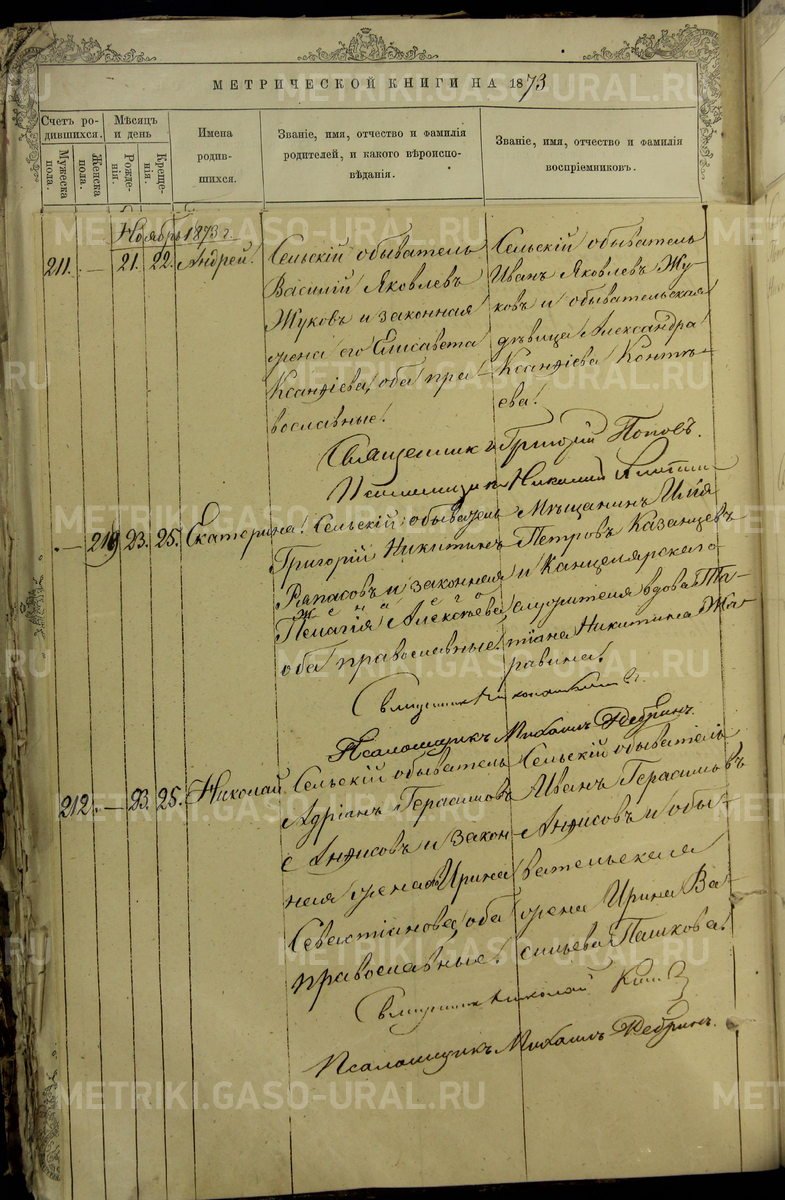 МЕТРИЧЕСКОЙ КНИГИ НА 1873
Счетъ родившихся.
Мужеска пола.
Женска пола.
Мѣсяцъ и день
Рожденія.
Крещенія.
Имена родившихся.
Званіе, имя, отчество и фамилія родителей, и какого вѣроисповѣданія.
Званіе, имя, отчество и фамилія воспріемниковъ.
Ноябрь 1873 г.
211. — 21. 22. Андрей.
Сельскій обыватель
Василій Яковлевъ
Жуковъ и законная
жена его Елисавета
Ксанфіева, оба пра-
вославные.
Сельскій обыватель
Иванъ Яковлевъ Жу-
ковъ и обывательская
дѣвица Александра
Ксанфіева Контѣ-
ева.
Священникъ Григорій Поповъ.
Николай
— 219 23. 25. Екатерина.
Сельскій обыватель
Григорій Никитинъ
и законная
жена его
Пелагія Алексѣева,
оба православные.
Мѣщанинъ Илія
Петровъ Казанцевъ
и Канцелярскаго
служителя вдова Та-
тіана Никитина Жа-
равина.
Священникъ
Псаломщикъ Михаилъ Дебринъ.
212. — 23. 25. Николай
Сельскій обыватель
Адріанъ Герасимовъ
Анфисовъ и закон-
ная жена Ирина
Севастіанова, оба
православные.
Сельскій обыватель
Иванъ Герасимовъ
Анфисовъ и обы-
вательская
жена Ирина Ва-
сильева Пашкова.
Священникъ Николай
Псаломщикъ Михаилъ Дебринъ.
METRIKI.GASO-URAL.RU